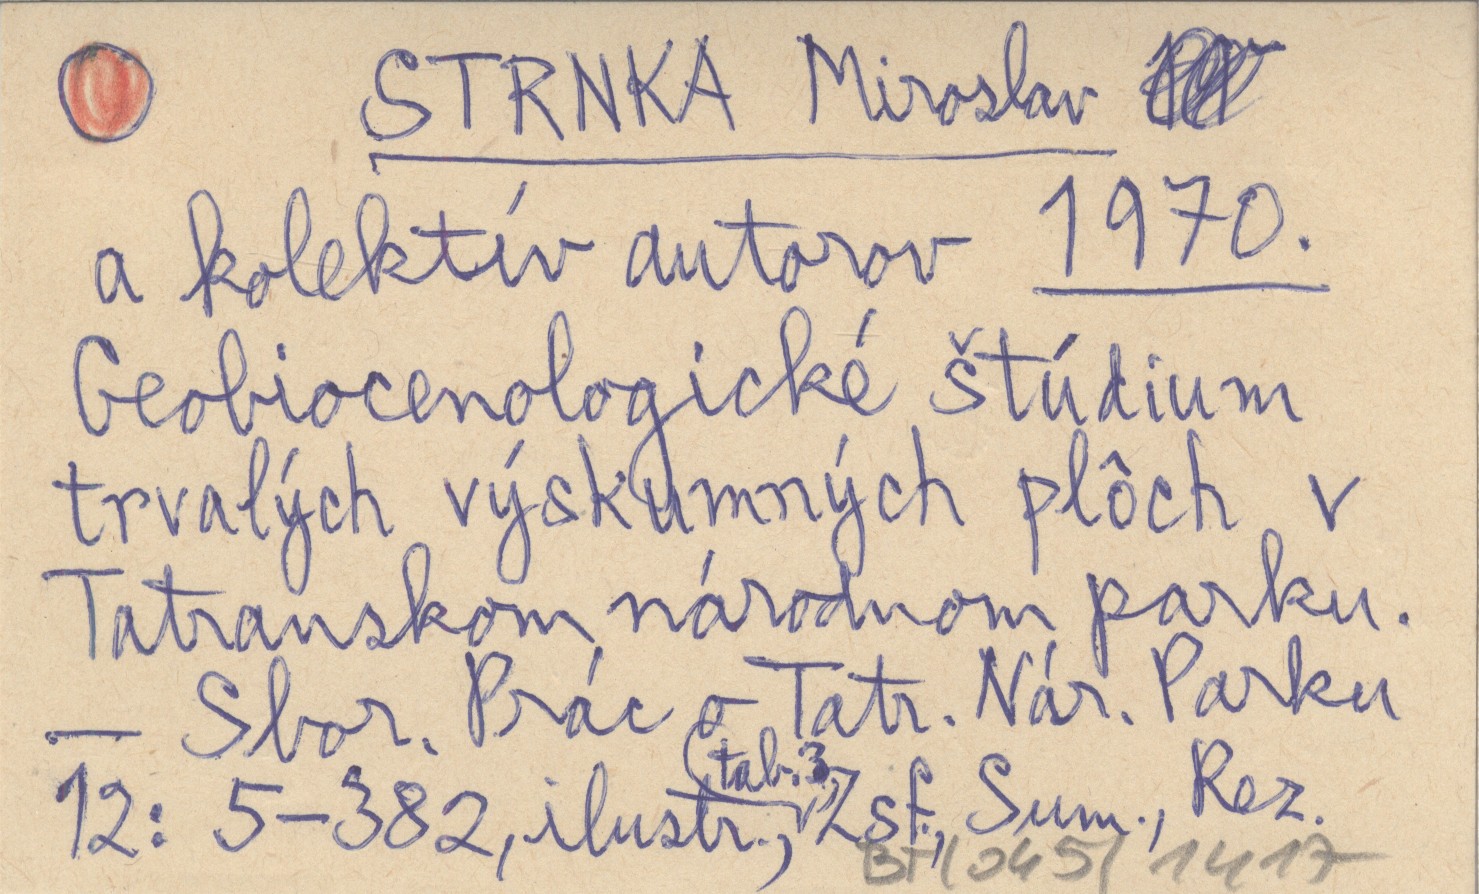 STRNKA Miroslav
a kolektív autorov 1970.
Geobiocenologické štúdium
trvalých výskumných plôch v
Tatranskom národnom parku.
— Sbor. Prác o Tatr. Nár. Parku
(tab. 3,
12: 5-382, ilustr., Zsf., Sum., Rez.
BT(045) 1417